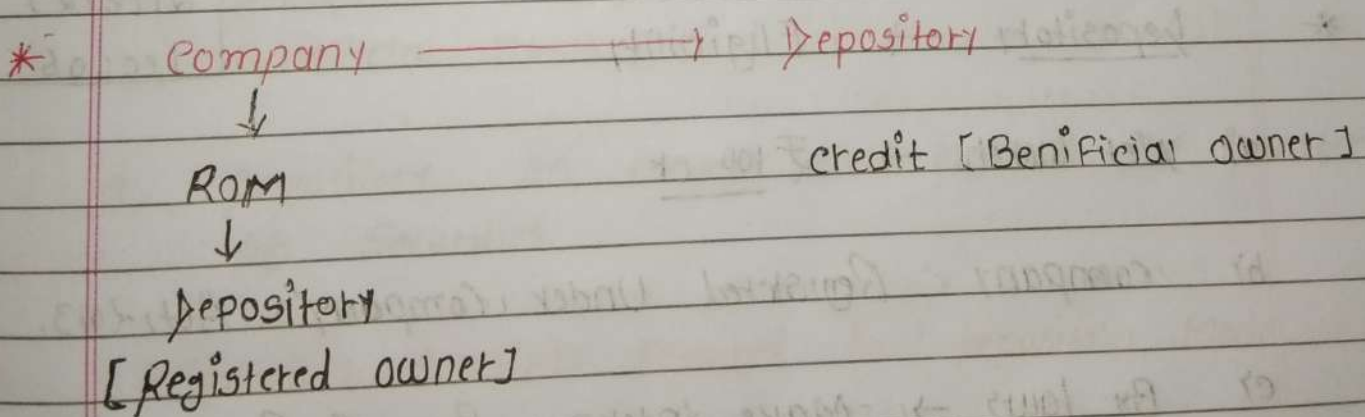 * Company → Depository
↓
credit [Benificial owner]
ROM
↓
Depository
[Registered owner]